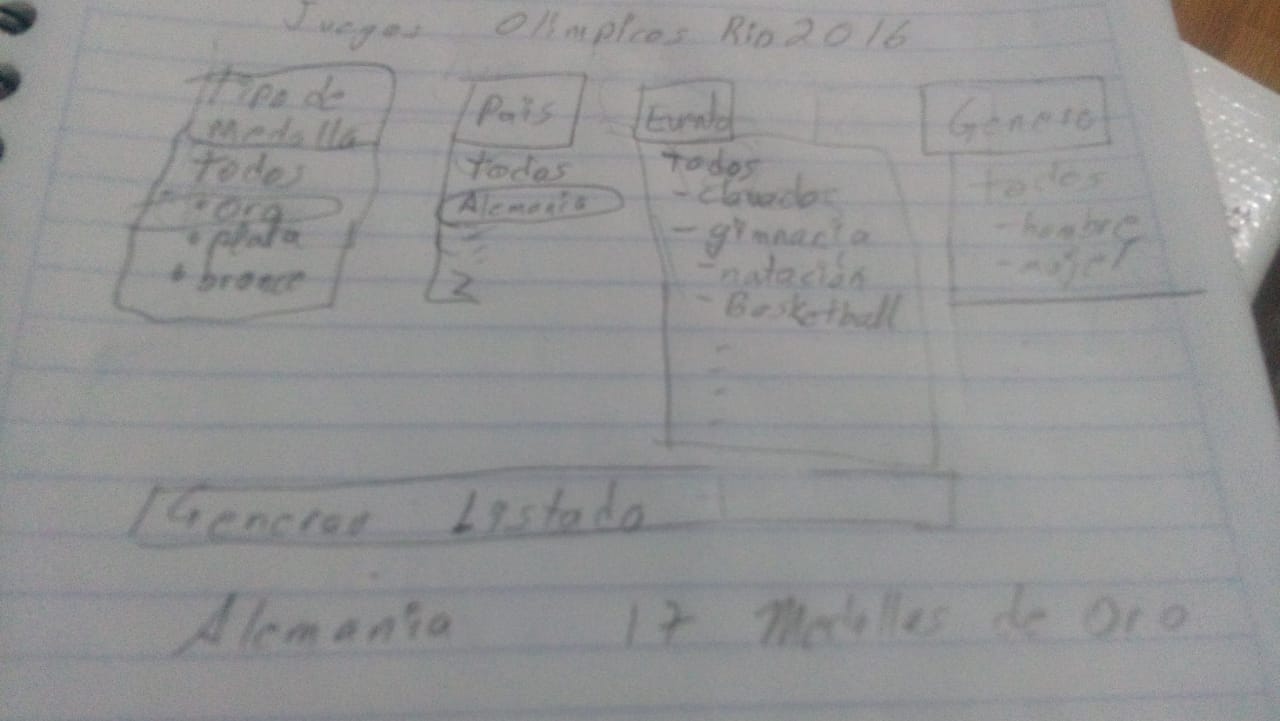 Juegos Olimpicos Rio 2016
Tipo de
Medalla
todos
• oro
• plata
• bronce
Pais
todos
Alemania
Z
Evento
todos
- clavados
- gimnacia
- natación
- Basketball
-
-
-
-
Genero
todos
- hombre
- mujer
Generar Listado
Alemania 17 Medallas de Oro